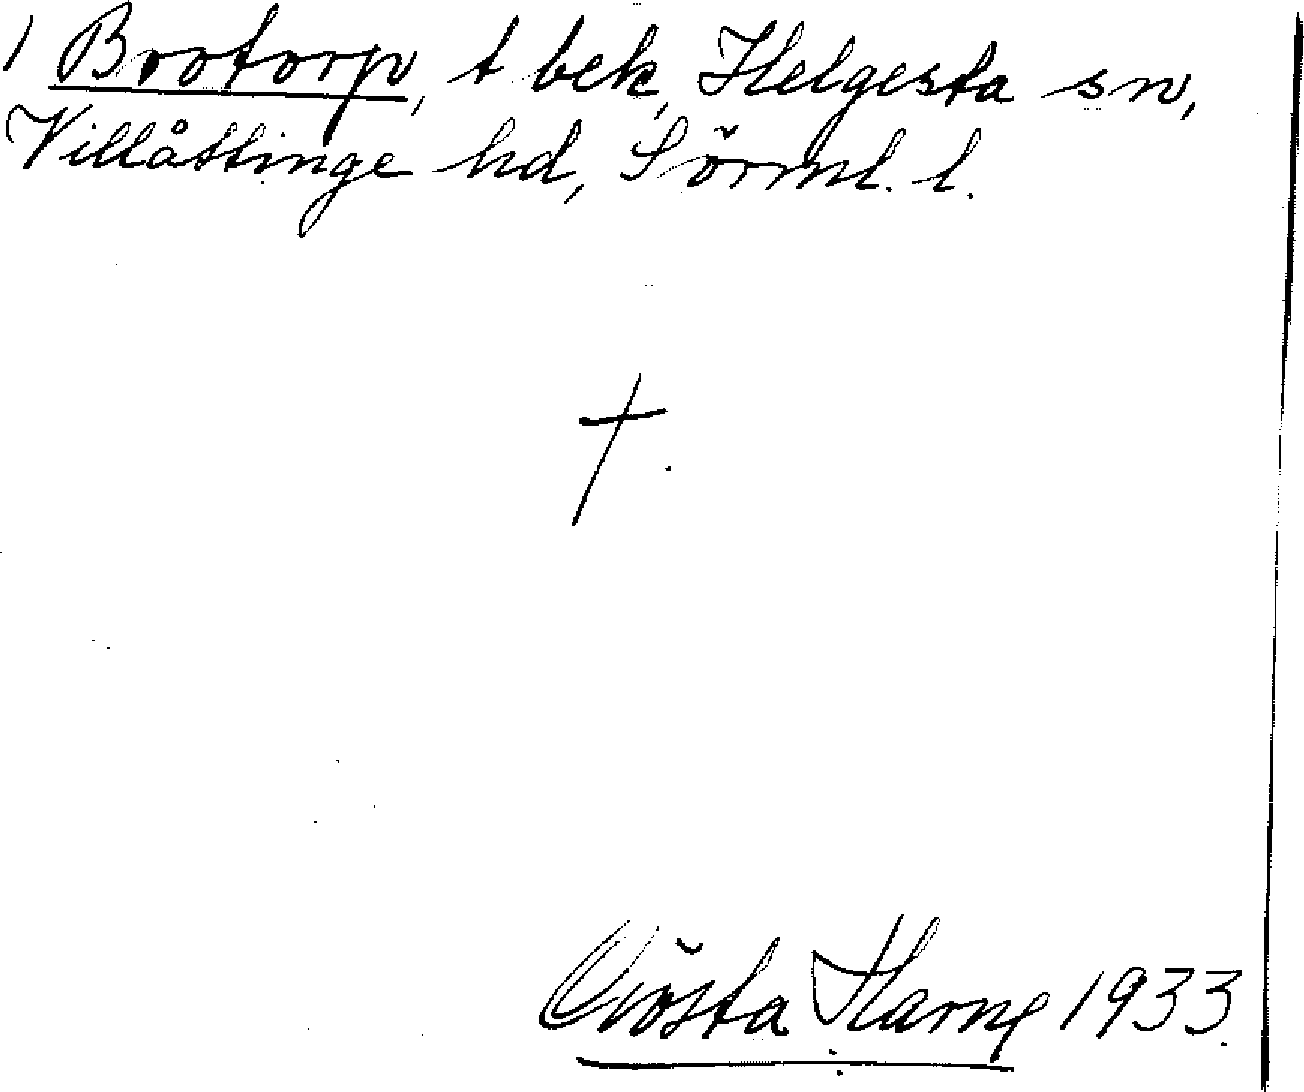 1 Brotorp, t bek, Helgesta sn,
Villåttinge hd, Sörml. l.
†.
Gösta Harng 1933.